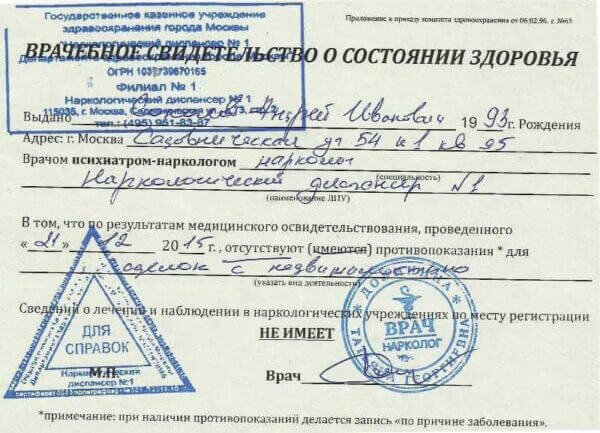 Приложение к приказу комитета здравоохранения от 06.02.96. г. №65
Государственное казенное учреждение
здравоохранения города Москвы
"Наркологический диспансер № 1
Департамента здравоохранения города Москвы"
ОГРН
Филиал № 1
Наркологический диспансер № 1
115035, г. Москва,
тел.: (495) 951-83-87
ВРАЧЕБНОЕ СВИДЕТЕЛЬСТВО О СОСТОЯНИИ ЗДОРОВЬЯ
Выдано Андрей Иванович 1993г. Рождения
Адрес: г. Москва Садовническая д 54 к1 кв 95
Врачом психиатром-наркологом нарколог
(специальность)
Наркологический диспансер №1
(наименование ЛПУ)
В том, что по результатам медицинского освидетельствования, проведенного
«21» 12 2015г., отсутствуют (имеются) противопоказания * для
сделок с недвижимостью
(указать вид деятельности)
Сведений о лечении и наблюдении в наркологических учреждениях по месту регистрации
НЕ ИМЕЕТ
ДЛЯ
СПРАВОК
Наркологический
диспансер №1
М.П.
ВРАЧ
НАРКОЛОГ
Врач
*примечание: при наличии противопоказаний делается запись «по причине заболевания».